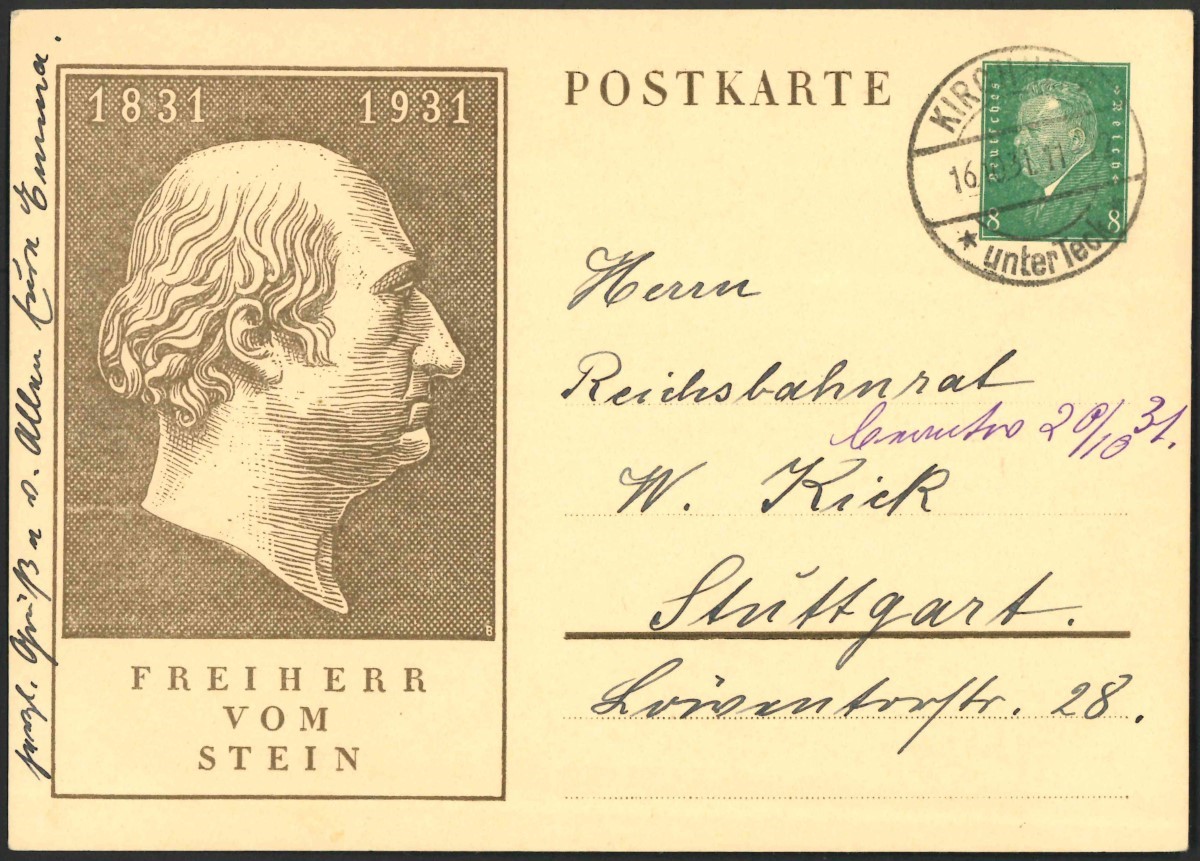 1831 1931
FREIHERR
VOM
STEIN
B
POSTKARTE
Deutsches Reich
8 8
KIRCHHEIM
16.10.31.11
* unter Teck *
Herrn
Reichsbahnrat
20/10 31.
W. Kick
Stuttgart.
Löwentorstr. 28.
herzl. Grüße v. Allen Eure Emma.